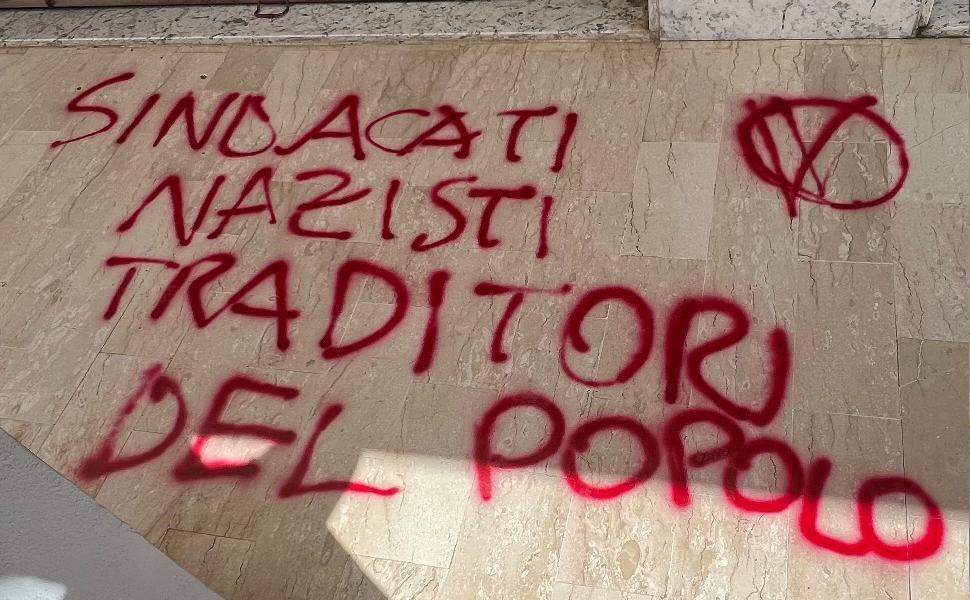 SINDACATI
NAZISTI
TRADITORI
DEL POPOLO